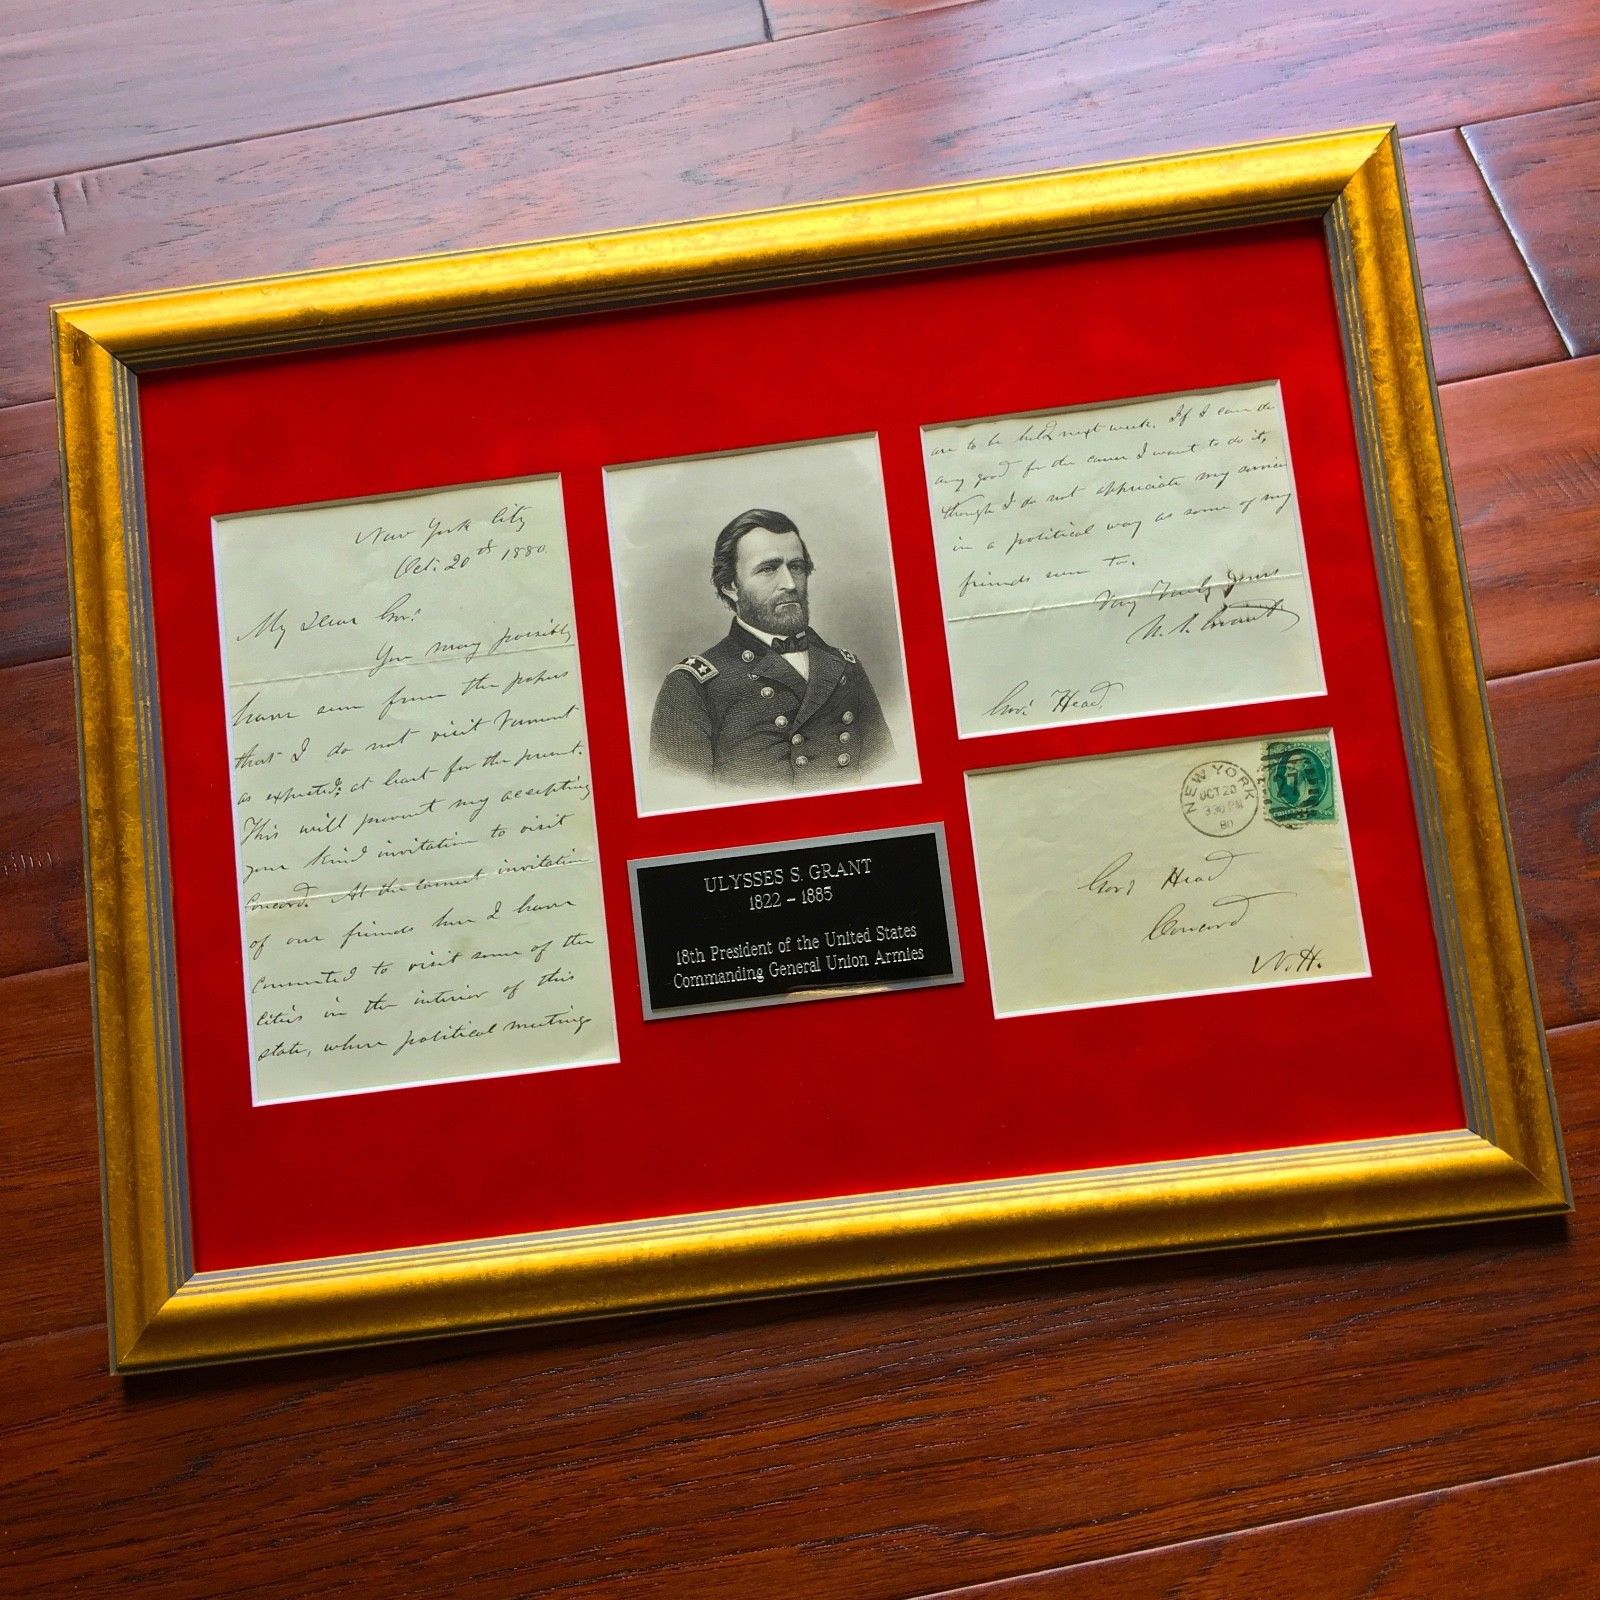 New York City
Oct. 20th 1880.
My Dear Gov.
You may possibly
have seen from the papers
that I do not visit Vermont
as expected, at least for the present.
This will prevent my accepting
your kind invitation to visit
Concord. At the earnest invitation
of our friends here I have
consented to visit some of the
cities in the interior of this
state, where political meetings
ULYSSES S. GRANT
1822 - 1885
18th President of the United States
Commanding General Union Armies
are to be held next week. If I can do
any good for the cause I want to do it,
though I do not appreciate my services
in a political way as some of my
friends seem to.
Very Truly Yours
U. S. Grant
Gov. Head.
NEW YORK
OCT 20
330 PM
80
Gov. Head
Concord
N.H.